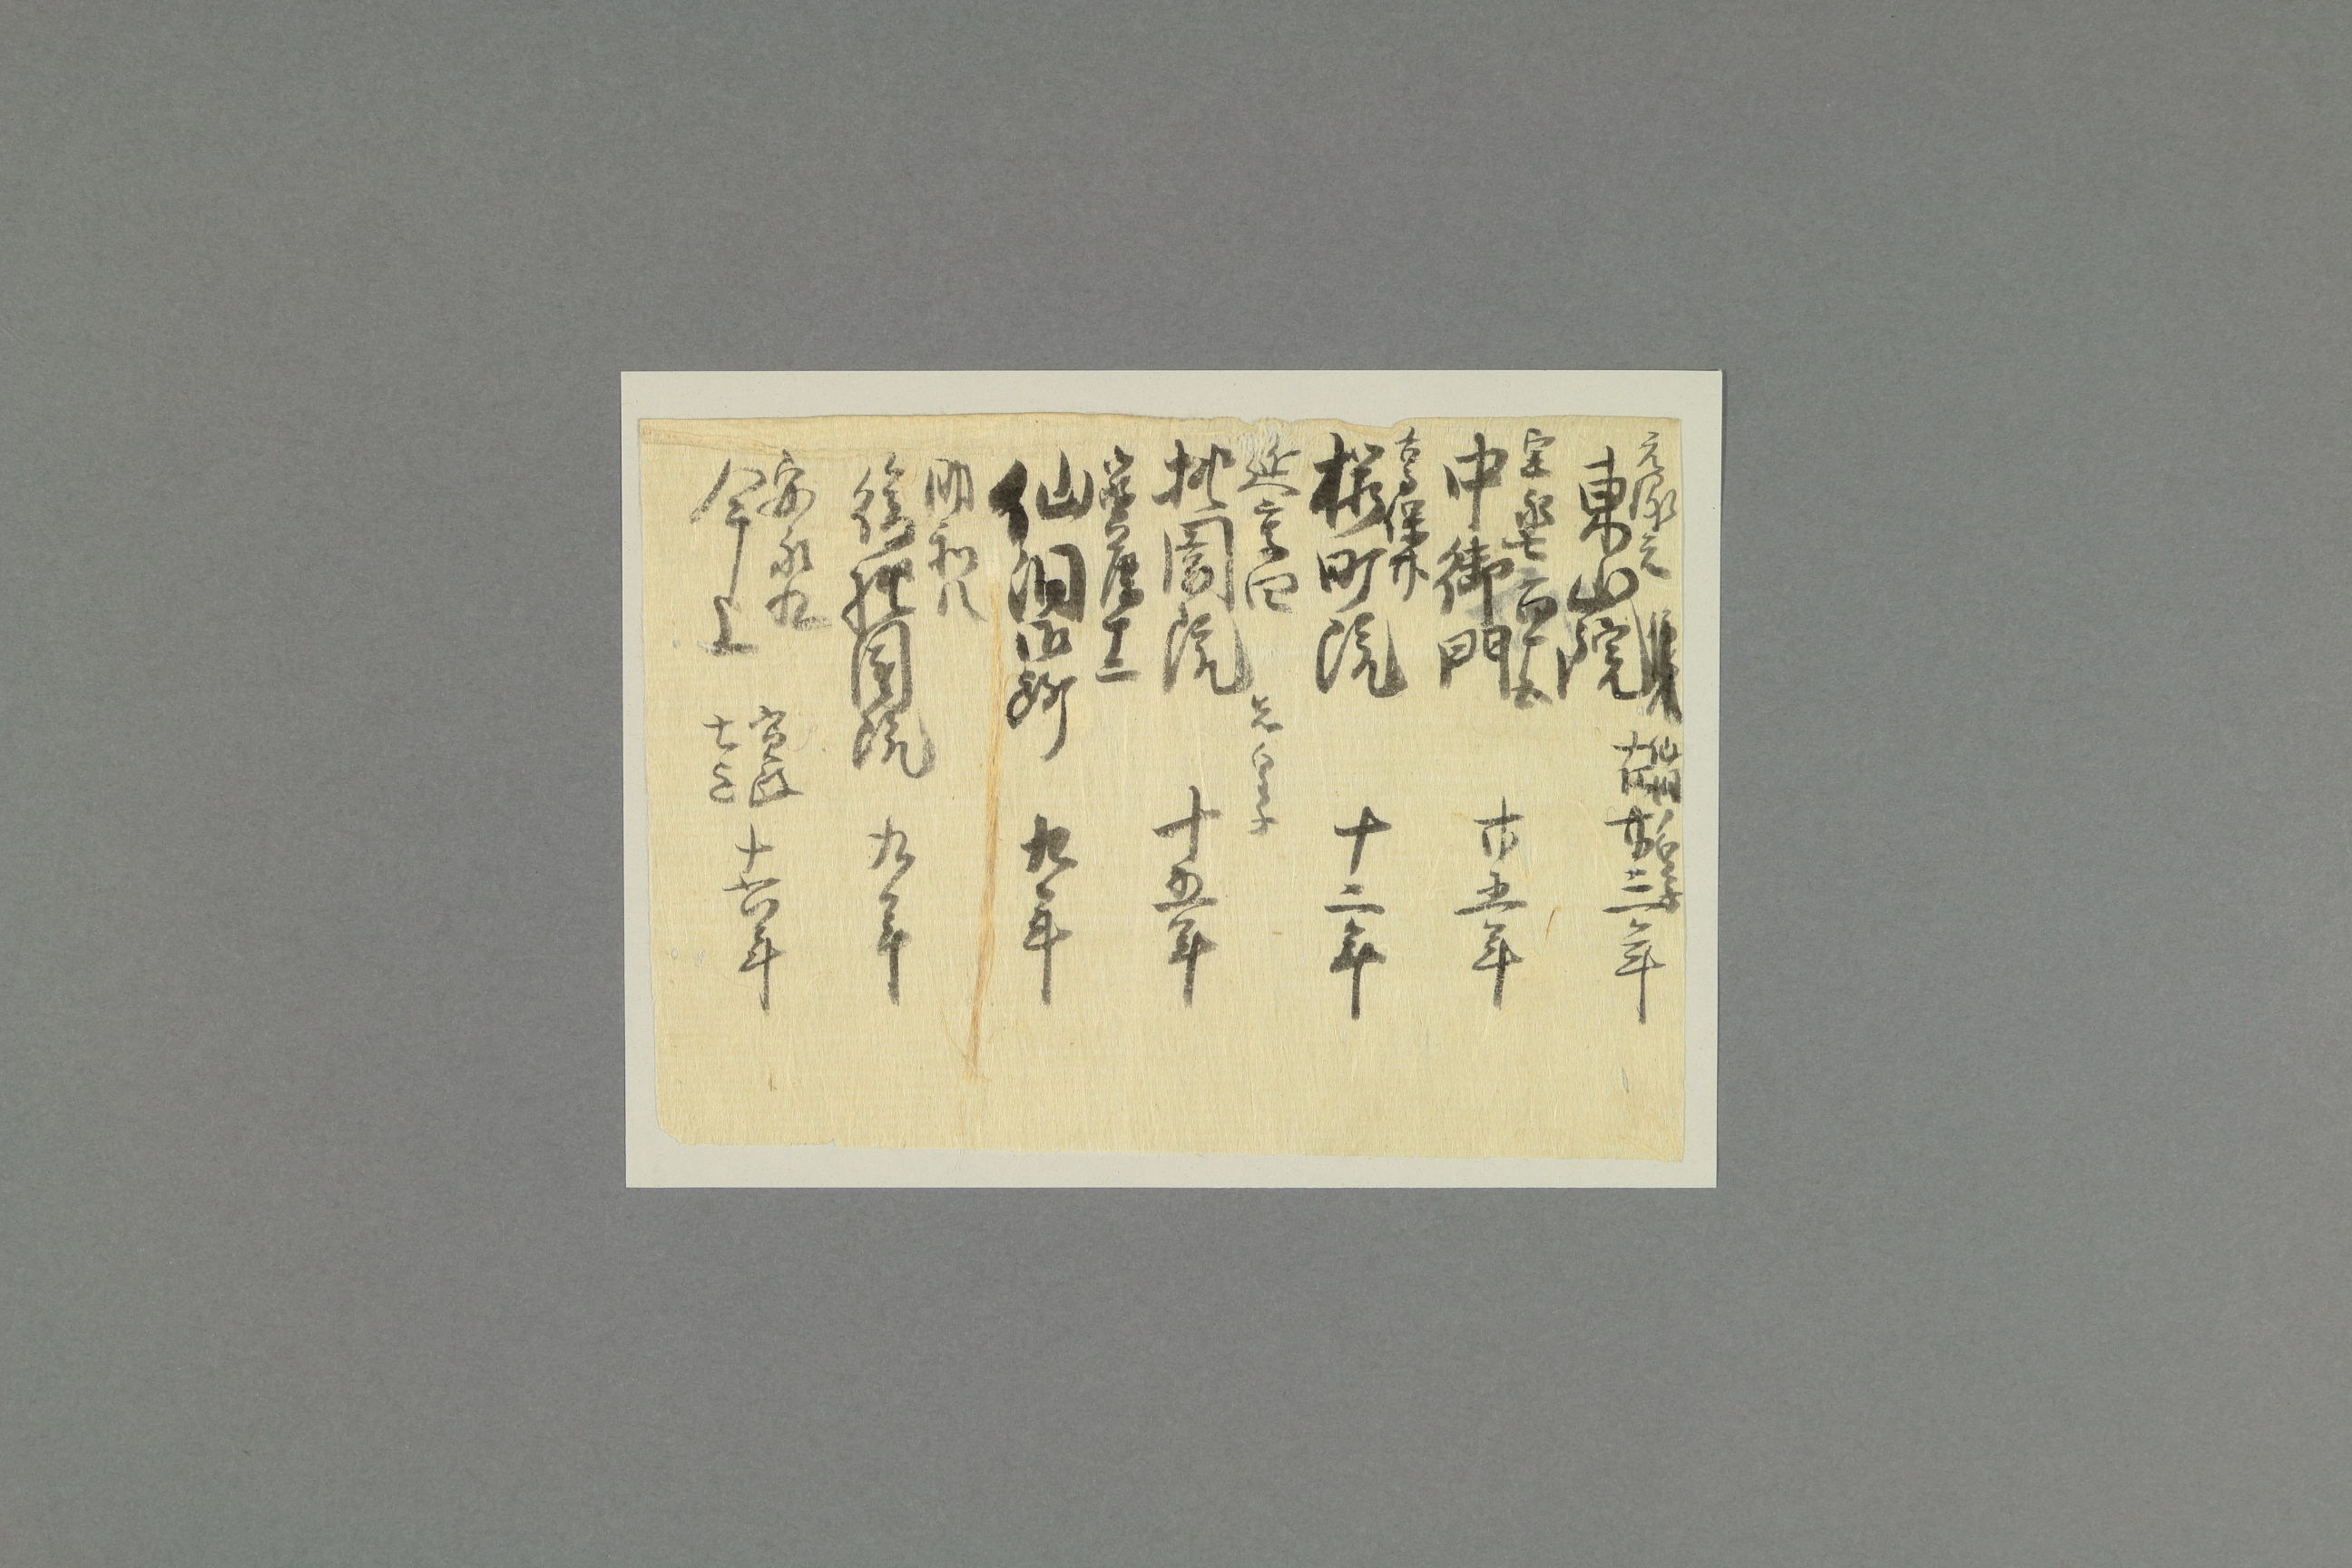 元禄元
東山院
廿三年
宝永七
中御門
廿五年
享保廿
桜町院
十二年
延享四
桃園院
十五年
宝暦十二
仙洞御所
九年
明和八
後桃園院
九年
安永九
今上
寛政
七迄
十六年